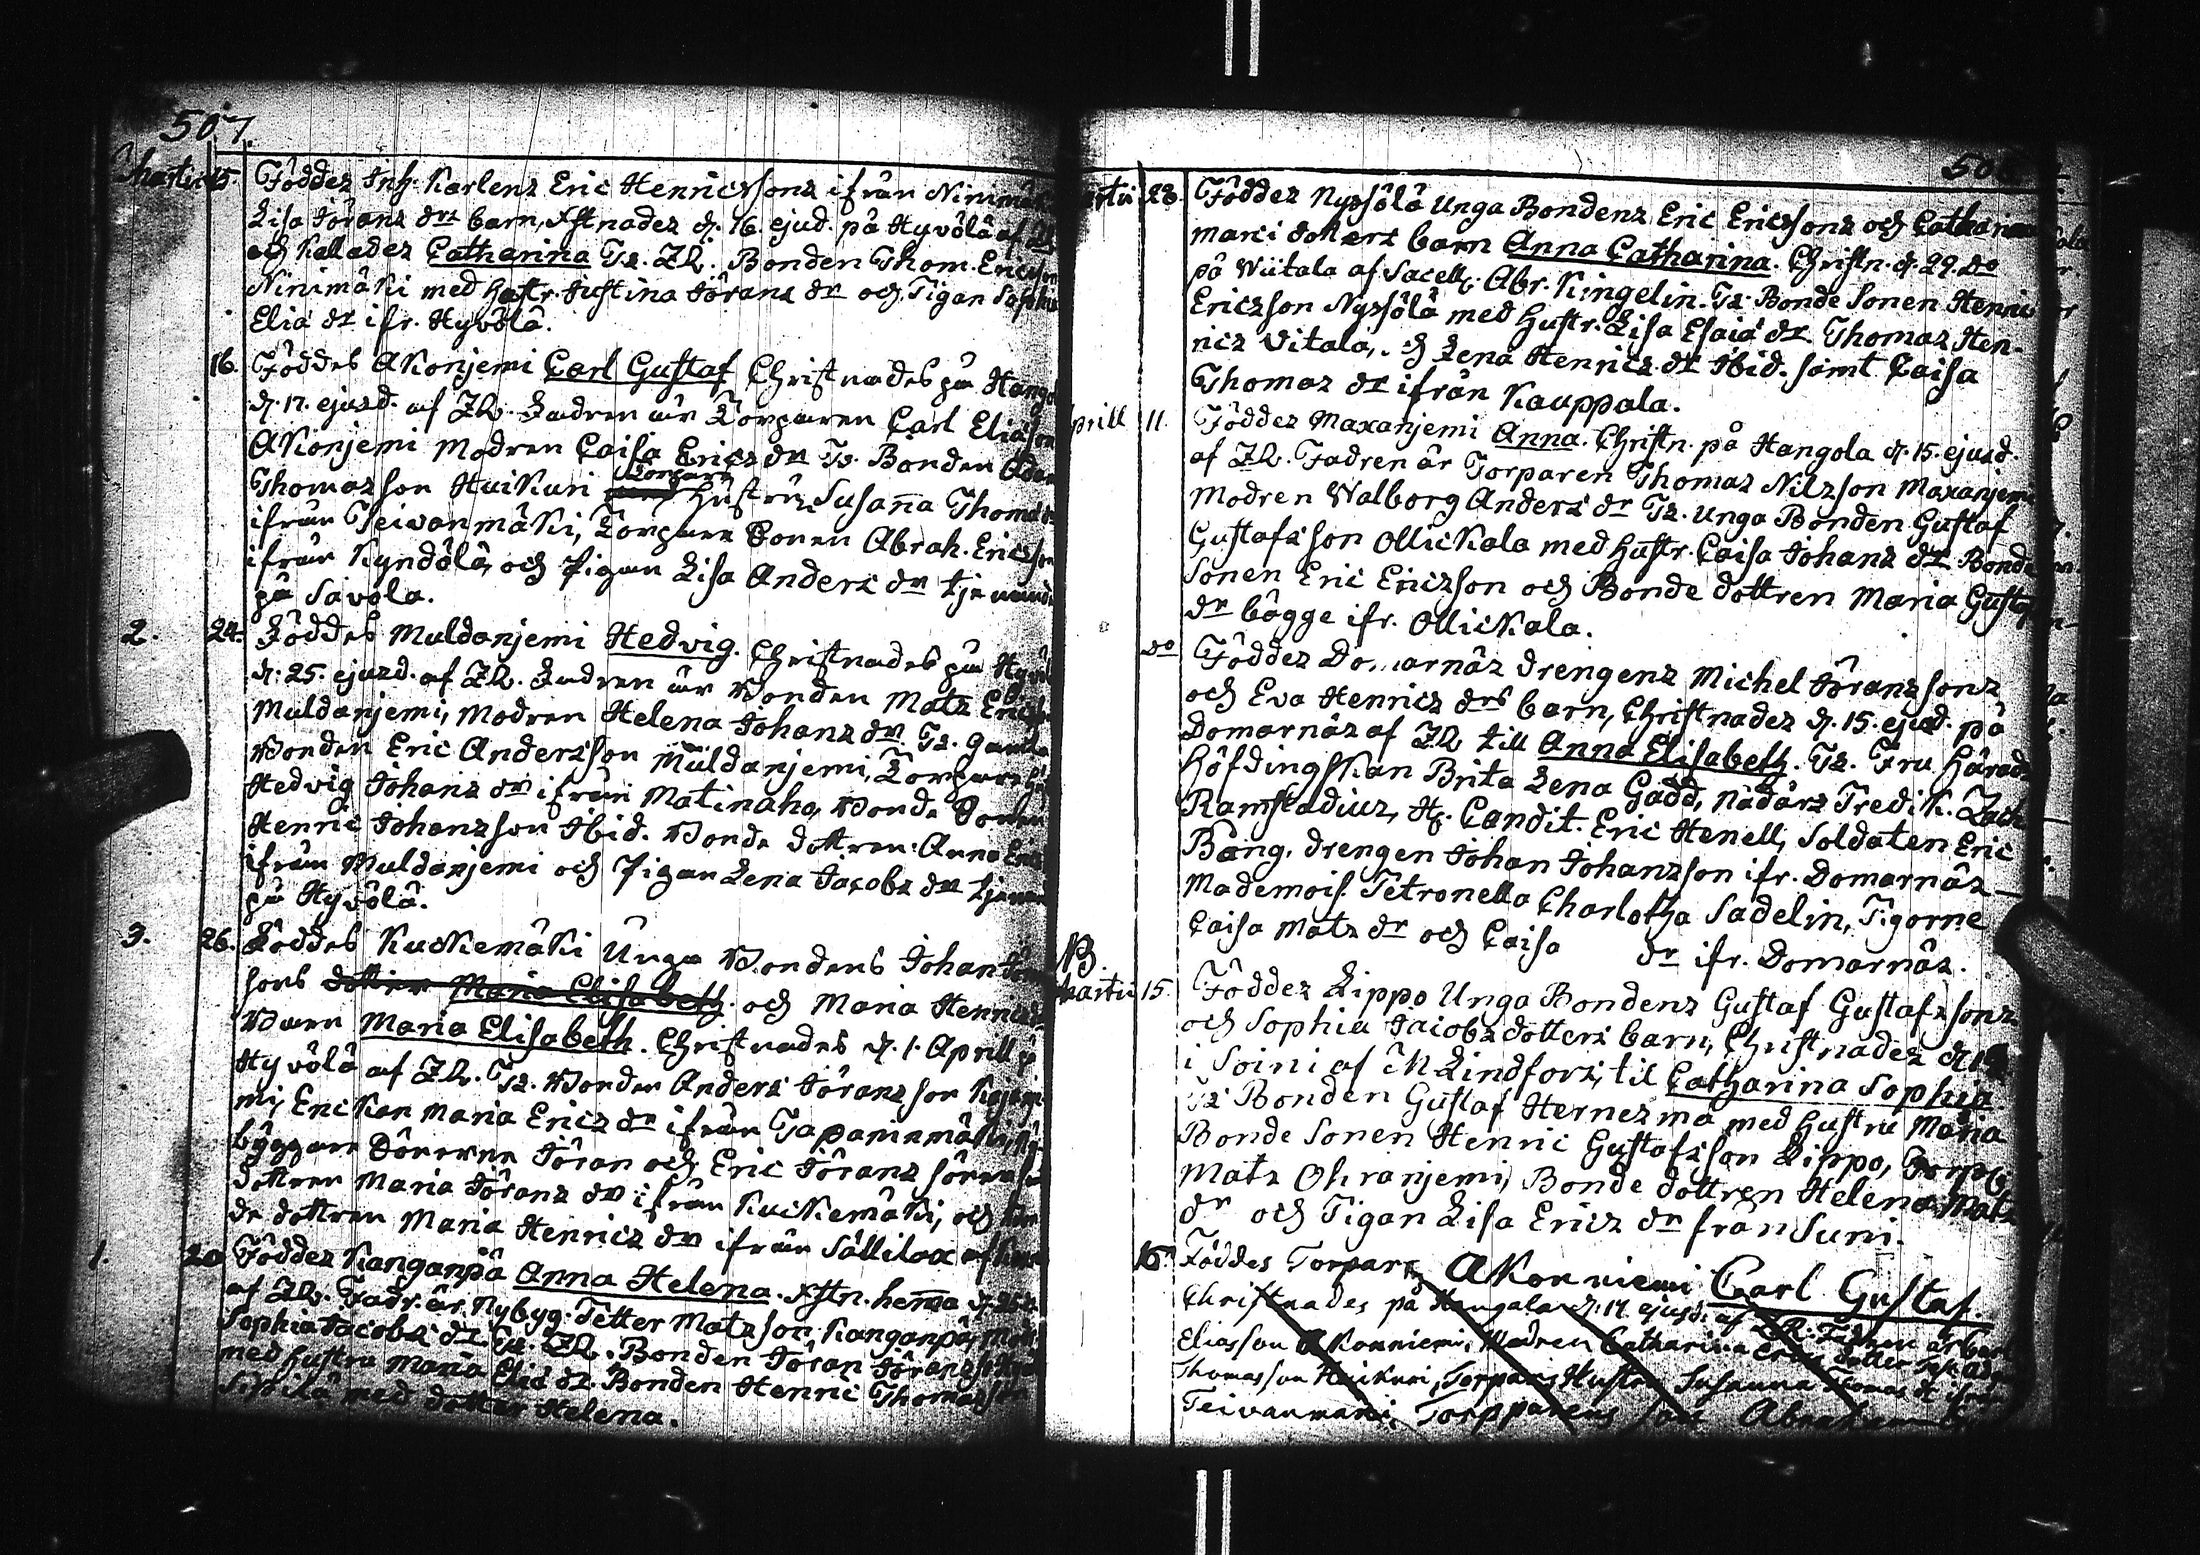 507.
Martii 15. Föddes Inh. Karlens Eric Henricssons ifrån Ninimäki
Lisa Jörans drs barn, Xstnades d. 16. ejusd. på Hyvölä af
och kallades Catharina Ts. ZR. Bonden Thom. Ericsson
Ninimäki med Hustr. Justina Jörans dr och Pigan Sophia
Elia dr ifr. Hyvölä.
16. Föddes Akonjemi Carl Gustaf Christnades på Hangola
d. 17. ejusd. af ZR. Fadren är Torparen Carl Eliasson
Akonjemi Modren Caisa Erics dr Ts. Bonden Adam
Thomasson Huikuri Torpare Hustrun Susanna Thomas
ifrån Teivanmäki, Torpare Sonen Abrah. Ericsson
ifrån Kyndölä, och Pigan Lisa Anders dr tjenande
på Savola.
2. 24. Föddes Muldanjemi Hedvig. Christnades på Hyvölä
d. 25. ejusd. af ZR. Fadren är Bonden Mats Ericsson
Muldanjemi, Modren Helena Johans dr Ts. gamla
Bonden Eric Andersson Muldanjemi, Torpare Hu
Hedvig Johans dr ifrån Matinaho, Bonde Sonen
Henric Johansson Ibid. Bonde dottren Anna Erics
ifrån Muldanjemi och Pigan Lena Jacobs dr tjenande
på Hyvölä.
3. 26. Föddes Kuckemäki Unga Bondens Johan Jöran
sons dotter Maria Elisabeth. och Maria Henrics
Barn Maria Elisabeth. Christnades d. 1. Aprill på
Hyvölä af ZR. Ts. Bonden Anders Joransson Kajanje
mi, Enckan Maria Erics dr ifrån Tapaninmäki, Ny
byggare Sönerne Jöran och Eric Jörans söner
dottren Maria Jörans dr ifrån Kuckemäki, och Bon
de dottren Maria Henrics dr ifrån Sällilax af
1. 20 Föddes Kanganpä Anna Helena. Xstn. hemma d. 25
af ZR. Fadr. är Nybyg. Petter Matsson Kanganpä, Modr.
Sophia Jacobs dr Ts. ZR. Bonden Jöran Jöransson
med Hustru Maria Elia dr Bonden Henric Thomasson
Sipilä med dotter Helena.
508
Martii 28. Föddes Nyssölä Unga Bondens Eric Ericssons och Catharina
Marci dotters barn Anna Catharina. Christn. d. 29. do
på Wiitala af Sacell. Abr. Kingelin. Ts. Bonde Sonen Henric
Ericsson Nyssölä med Hustr. Lisa Esaiæ dr Thomas Hen-
rics Vitala, och Lena Henrics dr Ibid. samt Caisa
Thomas dr ifrån Kauppala.
Aprill 11. Föddes Maxanjemi Anna. Christn. på Hangola d. 15. ejusd.
af ZR. Fadren är Torparen Thomas Nilsson Maxanjemi
Modren Walborg Anders dr Ts. Unga Bonden Gustaf
Gustafsson Ollickala med Hustr. Caisa Johans dr Bonde
Sonen Eric Ericsson och Bonde dottren Maria Gustaf
dr bägge ifr. Ollickala.
do Föddes Domarnäs Drengens Michel Joranssons
och Eva Henrics drs barn, Christnades d. 15. ejusd. på
Domarnäs af ZR till Anna Elisabeth. Ts. Fru Härads
Höfdingskan Brita Lena Gadd, Nådårs Predik. Zach
Ramstadius, H. Candit. Eric Henell, Soldaten Eric
Bång. Drengen Johan Johansson ifr. Domarnäs
Mademois. Petronella Charlotha Sadelin, Pigorne
Caisa Mats dr och Caisa dr ifr. Domarnäs.
NB.
Martii 15. Föddes Lippo Unga Bondens Gustaf Gustafssons
och Sophia Jacobs dotters barn, Christnades d.
i Soini af M Lindfors, til Catharina Sophia
Ts Bonden Gustaf Hernesma med Hustru Maria
Bonde Sonen Henric Gustafsson Lippo, Torp
Mats Ohranjemi, Bonde dottren Helena Mats
dr och Pigan Lisa Erics dr från Suni.
16 Föddes Torpare Akonniemi Carl Gustaf.
Christnades på Hangala d. 17. ejusd. af ZR. Fadren är Carl
Eliasson Akonniemi, Modren Catharina Erics dotter
Thomasson Huikuri, Torpare Hustru Susanna Thomas dr ifrån
Teivanmäki, Torpparens son Abraham